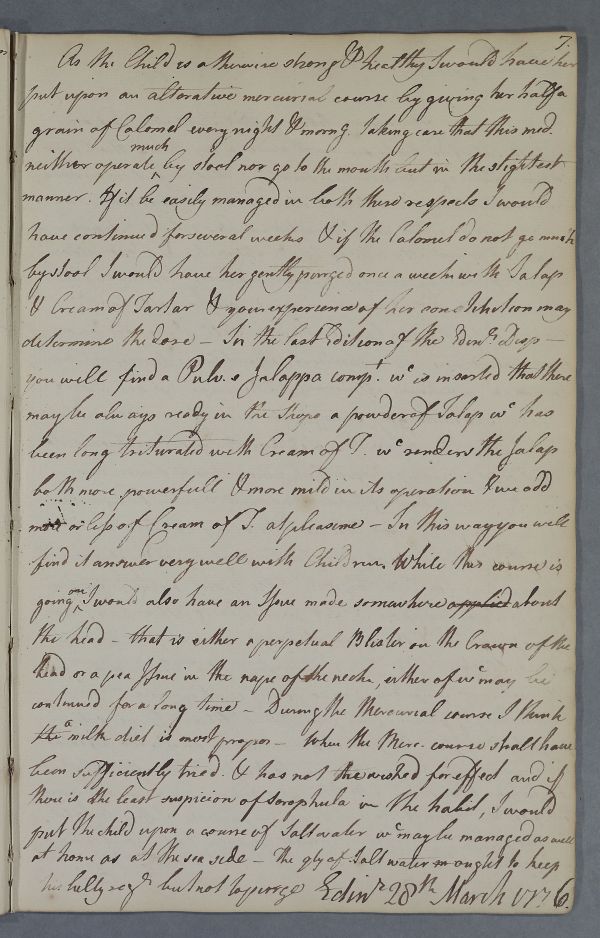 7.
As the Child is otherwise strong & healthy I would have her
put upon an alterative mercurial course by giving her half a
grain of Calomel every night & morng. taking care that this med.
much
neither operate ^ by stool nor go to the mouth but in the slightest
manner. If it be easily managed in both these respects I would
have continued for several weeks & if the Calomel do not go much
by stool I would have her gently purged once a week with Jalap
& Cream of Tartar & your experience of her constitution may
determine the dose – In the last Edition of the Edinr. Disp –
you will find a Pulv. e Jalappa compt. wc is inserted that there
may be always ready in the Shops a powder of Jalap wc has
been long triturated with Cream of T. wc renders the Jalap
both more powerfull & more mild in its operation & we add
more or less of Cream of T. at pleasure – In this way you will
find it answer very well with Children. While this course is
on
going ^ I would also have an Issue made somewhere applied about
the head – that is either a perpetual Blister on the Crown of the
head or a pea Issue in the nape of the neck, either of wc may be
continued for a long time – During the Mercurial course I think
the a milk diet is most proper – When the Merc. course shall have
been sufficiently tried & has not the wished for effect and if
there is the least suspicion of Scrophula in the habit, I would
put the child upon a course of Salt water wc may be managed as well
at home as at the sea side – the qty of Salt water ought to keep
belly regr. but not to purge Edinr 28th March 1776.